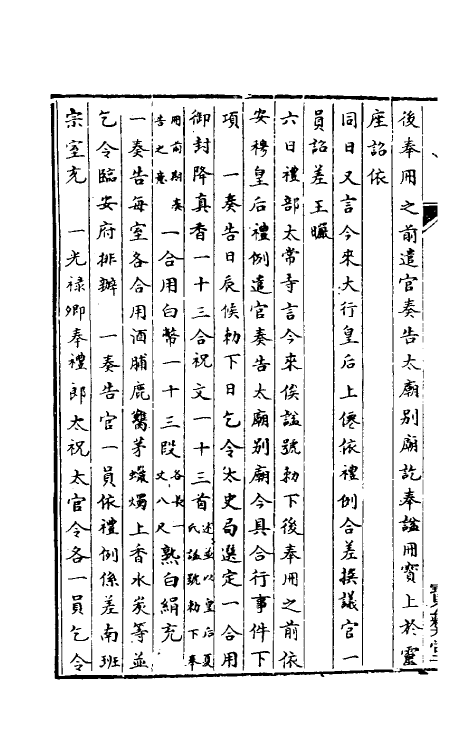 後奉冊之前遣官奏告太廟别廟訖奉謚冊寳上於靈
座詔依
同日又言今來大行皇后上僊依禮例合差撰議官一
員詔差王曮
六日禮部太常寺言今來俟謚號勑下後奉冊之前依
安穆皇后禮例遣官奏告太廟别廟今具合行事件下
項　一奏告日辰候勑下日乞令太史局選定一合用
御封降真香一十三合祝文一十三首述並以皇后夏氏謚號勑下奉
冊前期奏告之意　一合用白幣一十三段各長一丈八尺熟白絹充
一奏告每室各合用酒脯鹿臡茅燭上香水炭等並
乞令臨安府排辦　一奏告官一員依禮例係差南班
宗室充　一光禄卿奉禮郎太祝太官令各一員乞令